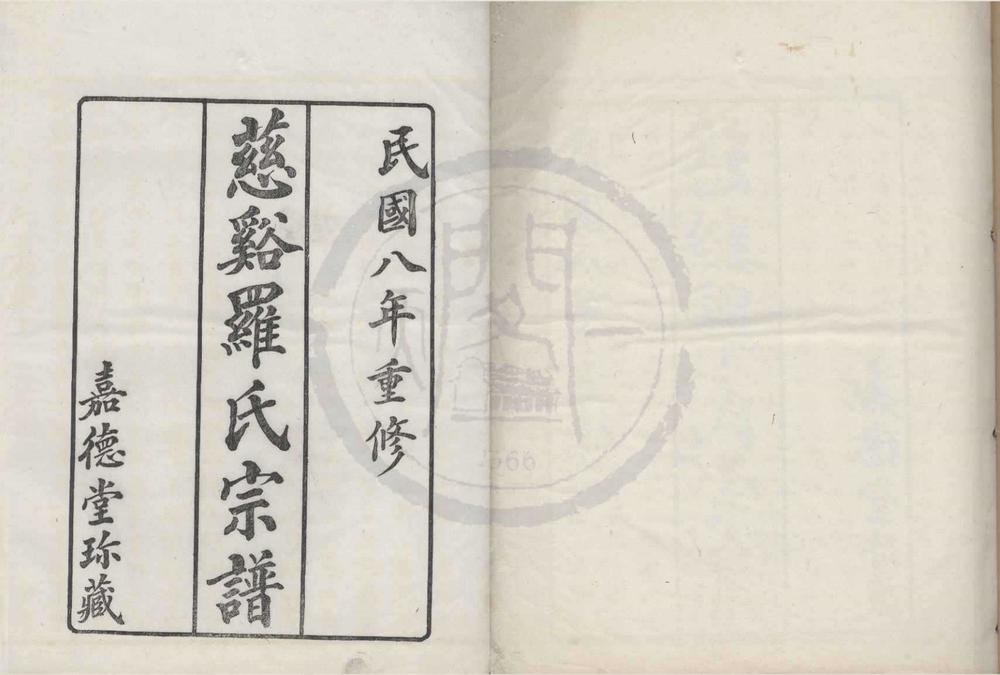 民國八年重修
慈谿羅氏宗譜
嘉德堂珎藏
1566